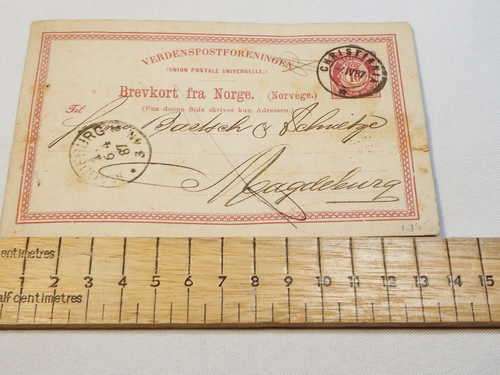 VERDENSPOSTFORENINGEN
(UNION POSTALE UNIVERSELLE.)
Brevkort fra Norge. (Norvege.)
(Paa denne Side skrives kun Adressen.)
CHRISTIANIA
Til
Herren Baetsch & Schnetge
Magdeburg
centimetres
1 2 3 4 5 6 7 8 9 10 11 12 13 14 15
half centimetres